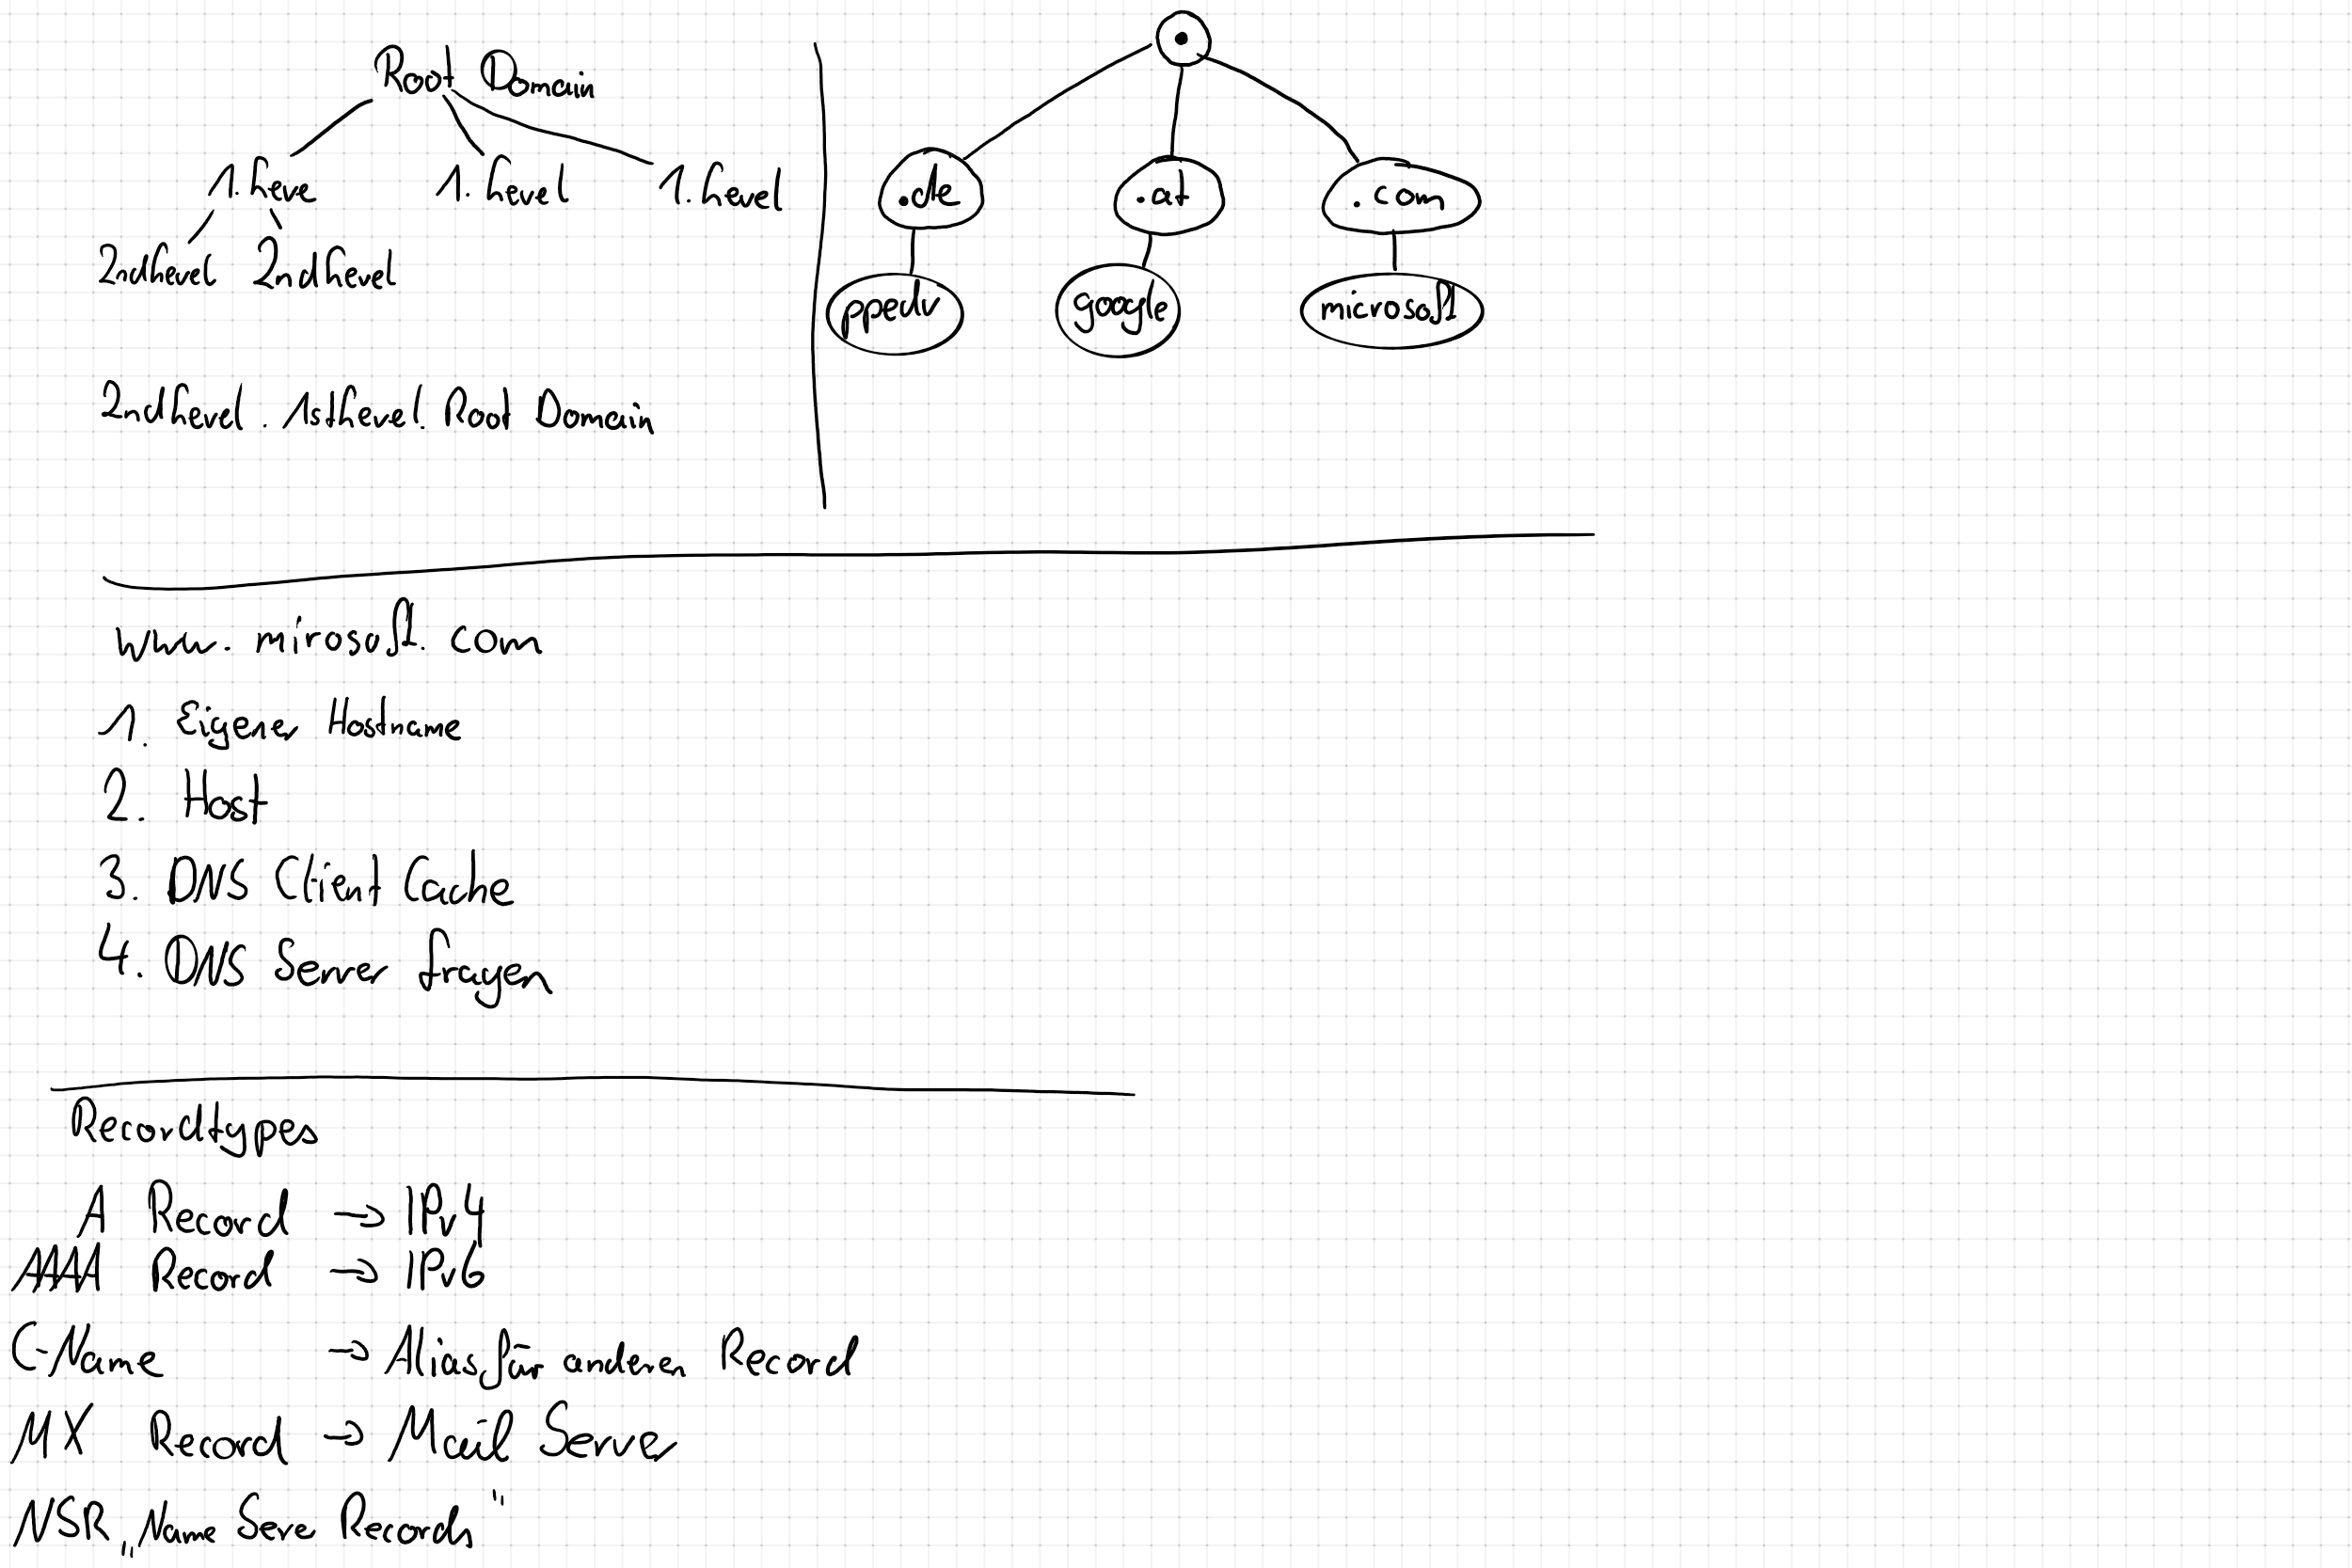 Root Domain
1. Leve 1. Level 1. Level
2ndLevel 2ndLevel
2ndLevel . 1stLevel. Root Domain
.de .at .com
ppedv google microsoft
www. mirosoft. com
1. Eigener Hostname
2. Host
3. DNS Client Cache
4. DNS Server fragen
Recordtypes
A Record → IPv4
AAAA Record → IPv6
C-Name → Alias für anderen Record
MX Record → Mail Server
NSR „Name Serve Records"